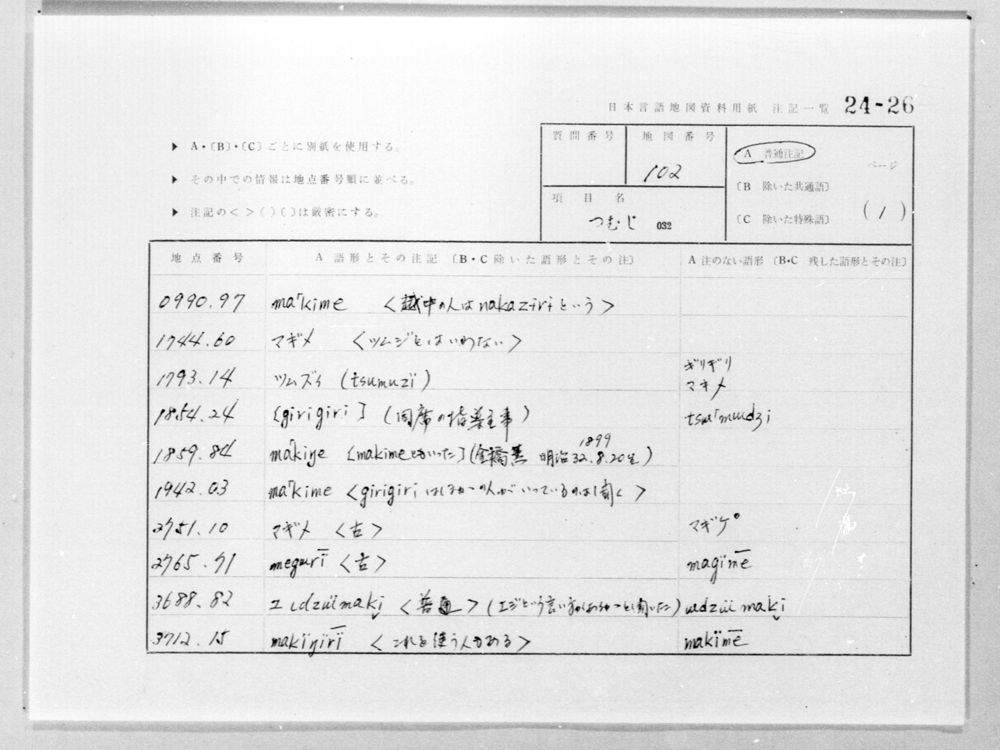 日本言語地図資料用紙 注記一覧 24-26
▶ A・〔B〕・〔C〕ごとに別紙を使用する。
▶ その中での情報は地点番号順に並べる。
▶ 注記の< >( )〔 〕は厳密にする。
質問番号 地図番号
102
項目名
つむじ 032
A 普通注記
ページ
〔B 除いた共通語〕
〔C 除いた特殊語〕
(1)
地点番号 A 語形とその注記〔B・C除いた語形とその注〕 A 注のない語形〔B・C 残した語形とその注〕
0990.97 maˈkime <越中の人はnakaziriという>
1744.60 マギメ <ツムジとはいわない>
1793.14 ツムズィ (tsumuzï) ギリギリ マキメ
1854.24 〔girigiri〕 (同席の指導主事)
1859.84 〔makimeともいった〕 1899 明治32.8.20生)
1942.03 maˈkime <girigiri
2751.10 マギメ <古> マギケ°
2765.71 megurï <古> magïme
3688.82 <普通> (エジという言い方
3712.15 <これを使う人もある> makïme